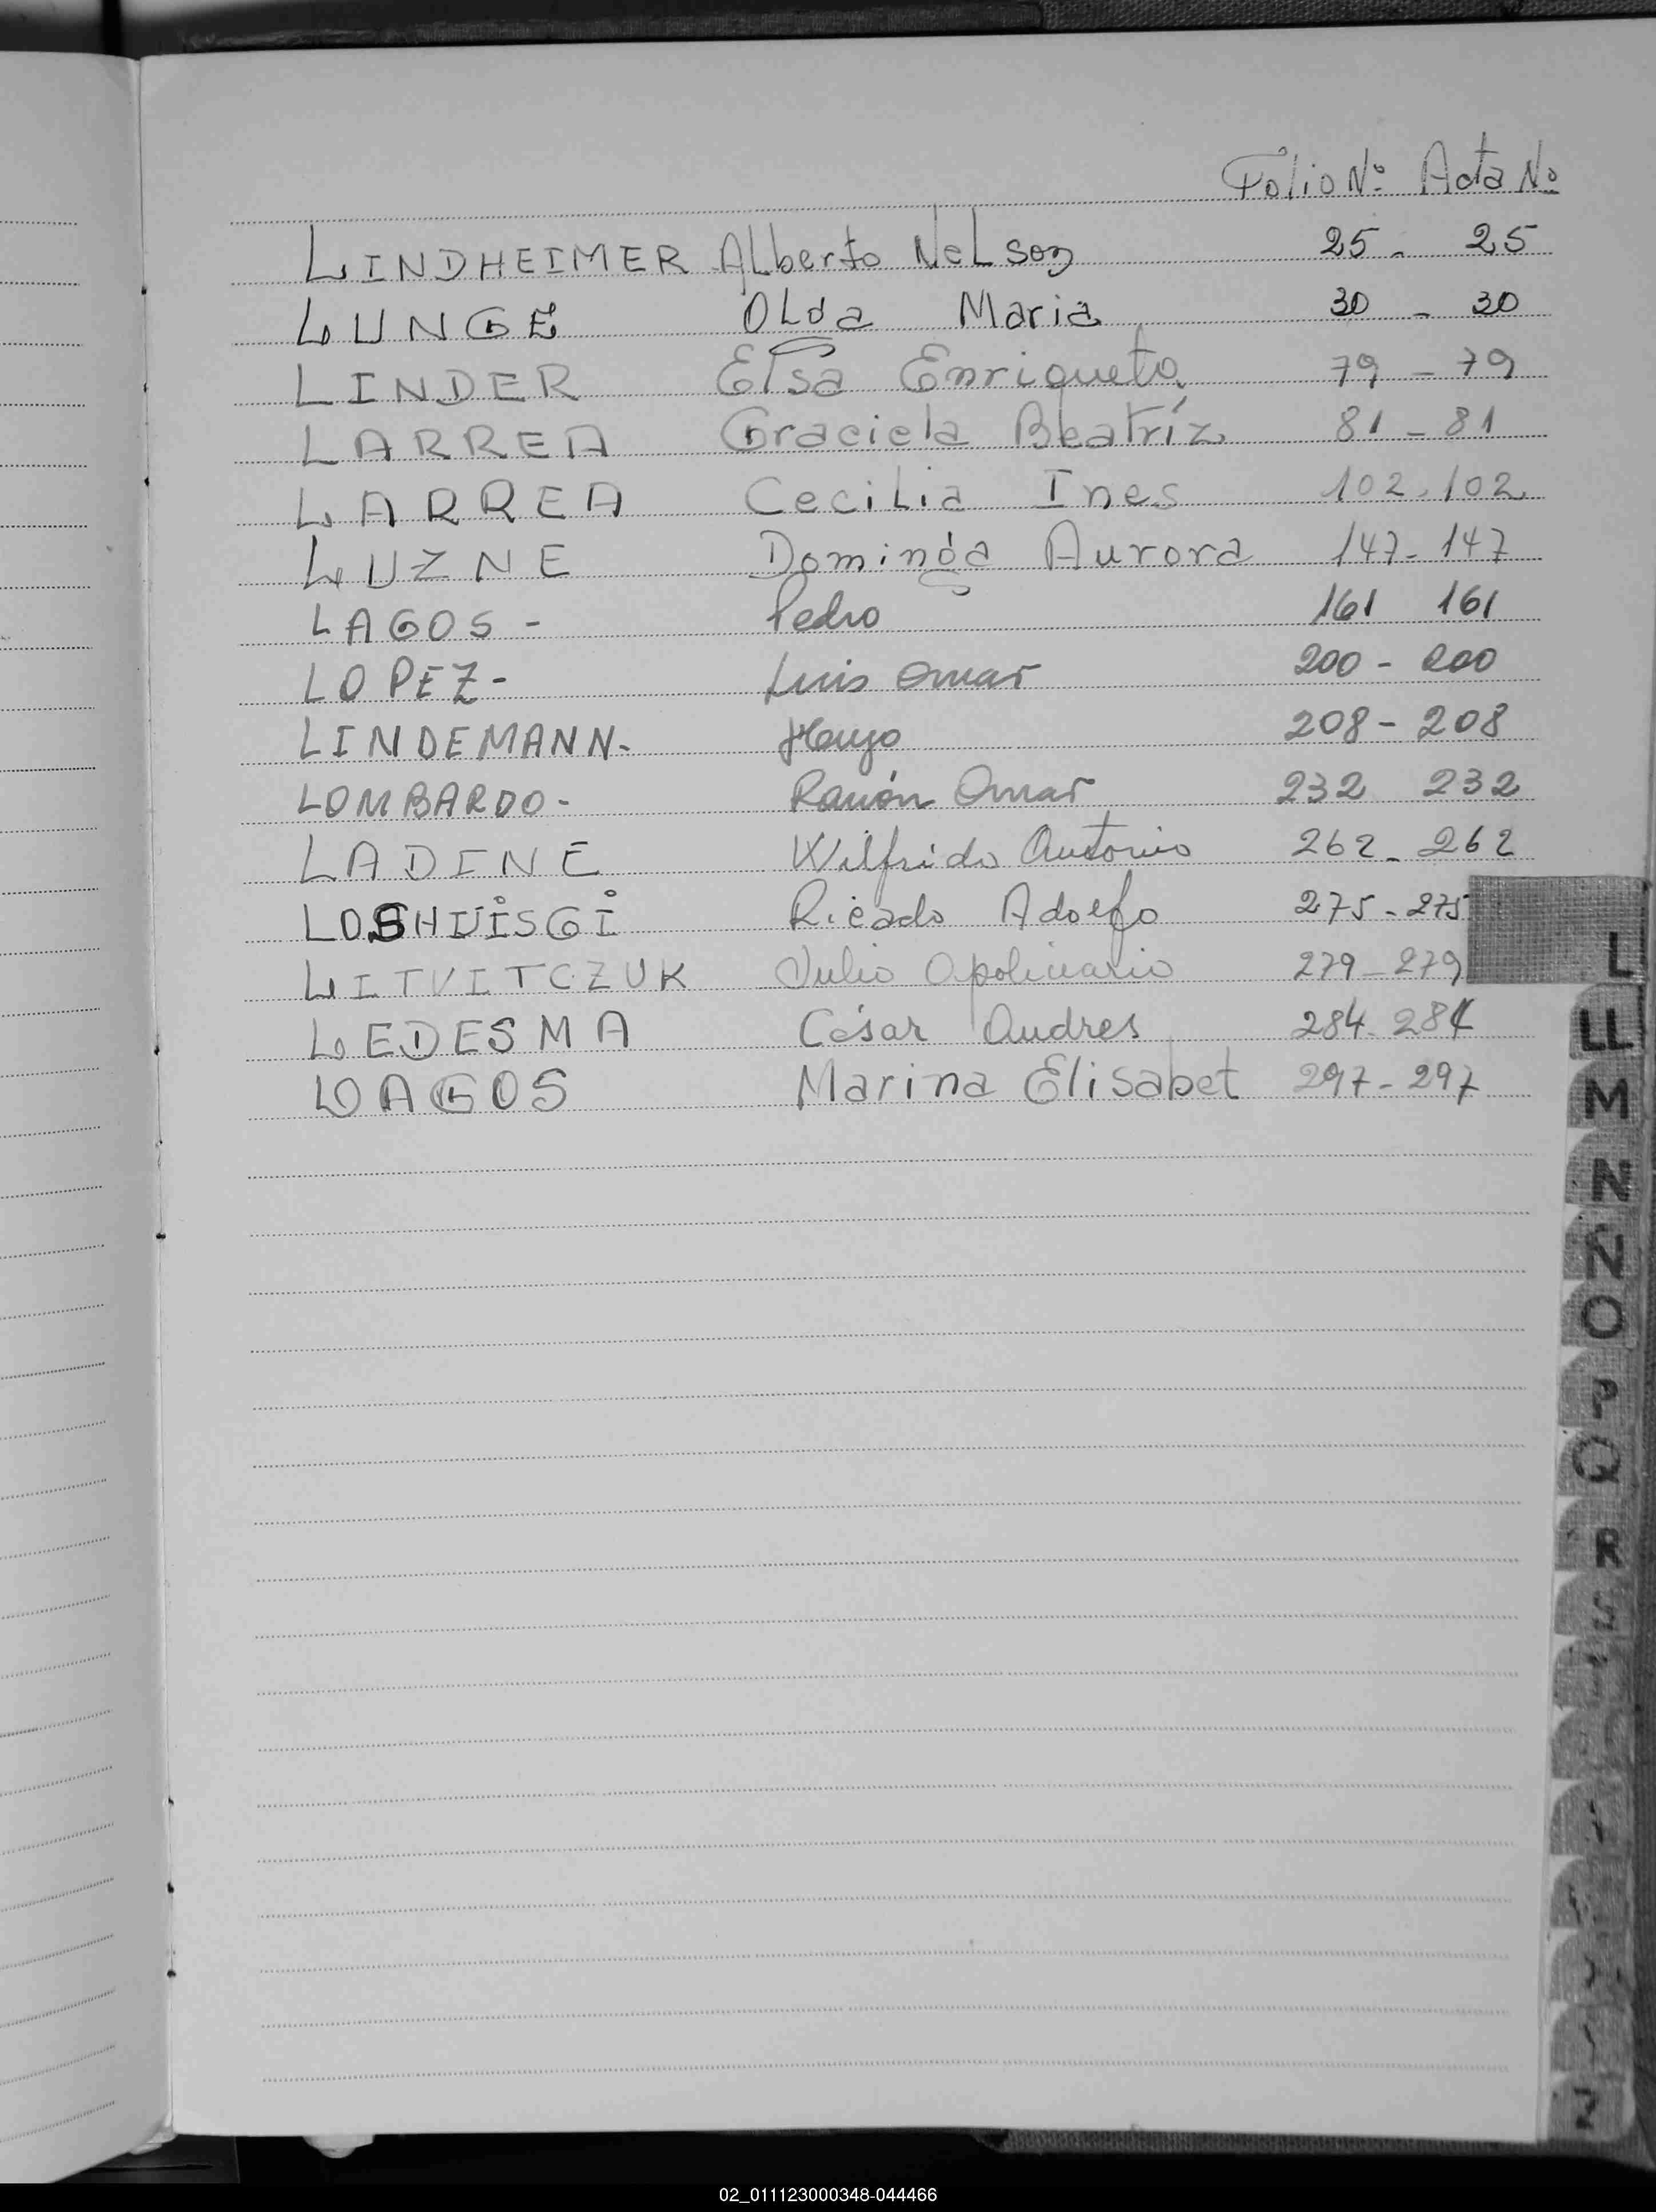 Folio Nº Acta Nº
LINDHEIMER Alberto Nelson 25 - 25
LUNGE Olga Maria 30 - 30
LINDER Elsa Enriqueta 79 - 79
LARREA Graciela Beatríz 81 - 81
LARREA Cecilia Ines 102 - 102
LUZNE Dominga Aurora 147 - 147
LAGOS - Pedro 161 161
LOPEZ - Luis Omar 200 - 200
LINDEMANN - Hugo 208 - 208
LOMBARDO - Ramón Omar 232 232
LADINE Wilfrido Antonio 262 - 262
Ricado Adolfo 275 - 275
LITVITCZUK Julio Apolinario 279 - 279
LEDESMA César Andres 284 - 284
LAGOS Marina Elisabet 297 - 297
L
LL
M
N
Ñ
O
P
Q
R
S
Z
02_011123000348-044466